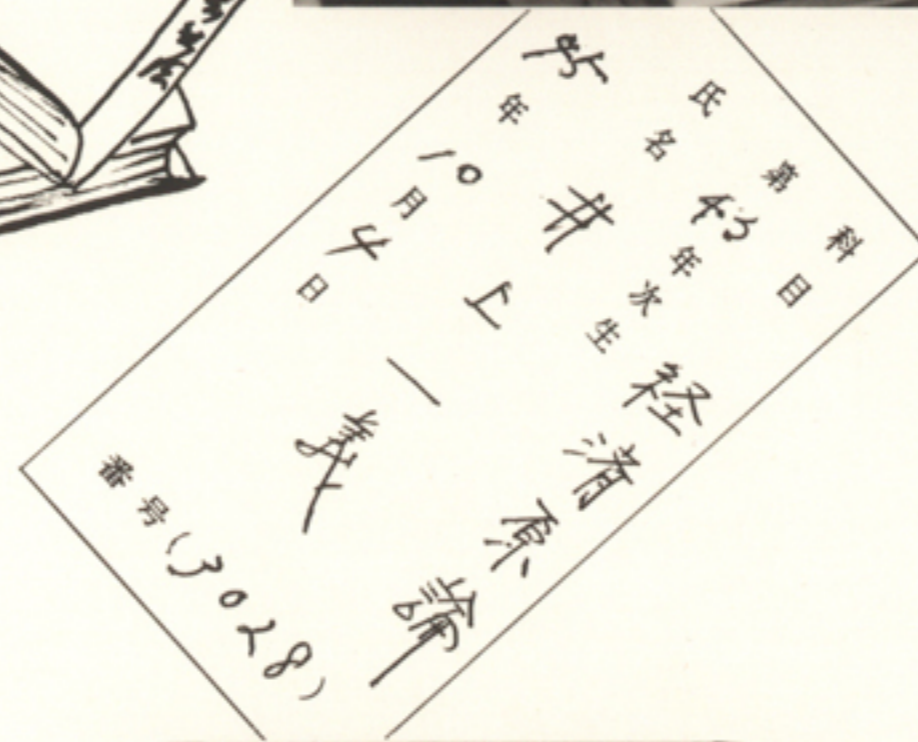 科目 経済原論
第 年次生
氏名 井上一義
年10月4日
番号(3028)